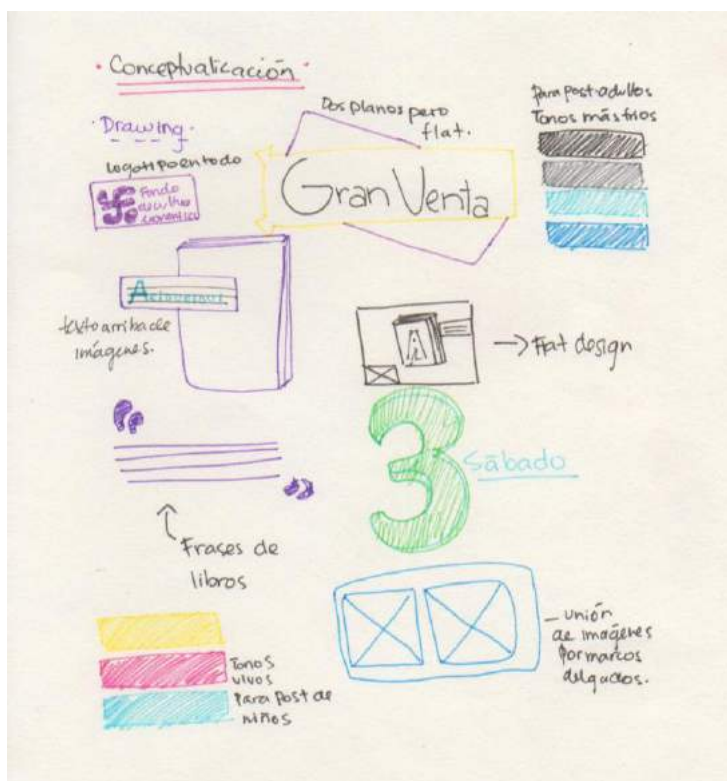 · Conceptualización ·
· Drawing ·
Logotipo en todo
Fondo
de cultura
económica
Dos planos pero
flat.
Gran Venta
Para post adultos
Tonos más fríos
texto arriba de
imágenes.
A
→ Flat design
3
Sábado
“
”
Frases de
libros
Tonos
vivos
Para post de
niños
— unión
de imágenes
por marcos
delgados.